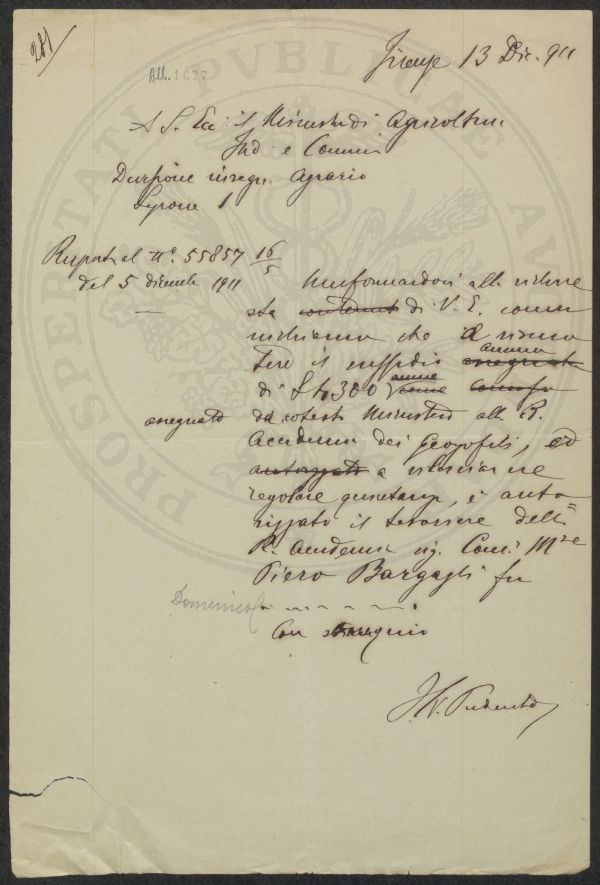 281
All. 1677
Firenze 13 Dic. 911
A S. Ecc. il Ministro di Agricoltura
Ind. e Comm.
Direzione insegn. Agrario
Sezione 1
Risposta al N.º 55857 16/5
del 5 dicembre 1911
Uniformandosi alla richie
sta contenuta di V. E.
dichiara che a riscuo
tere il sussidio annuo assegnato
di L. 300
assegnato da cotesto Ministero alla R.
Accademia dei Georgofili, ed
autorizzato a rilasciarne
regolare quietanza, è auto
rizzato il tesoriere della
R. Accademia sig. Com. M.se
Piero Bargagli fu
Domenico
Con ossequio
Il V. Presidente
PROSPERITATI PUBLICAE AU